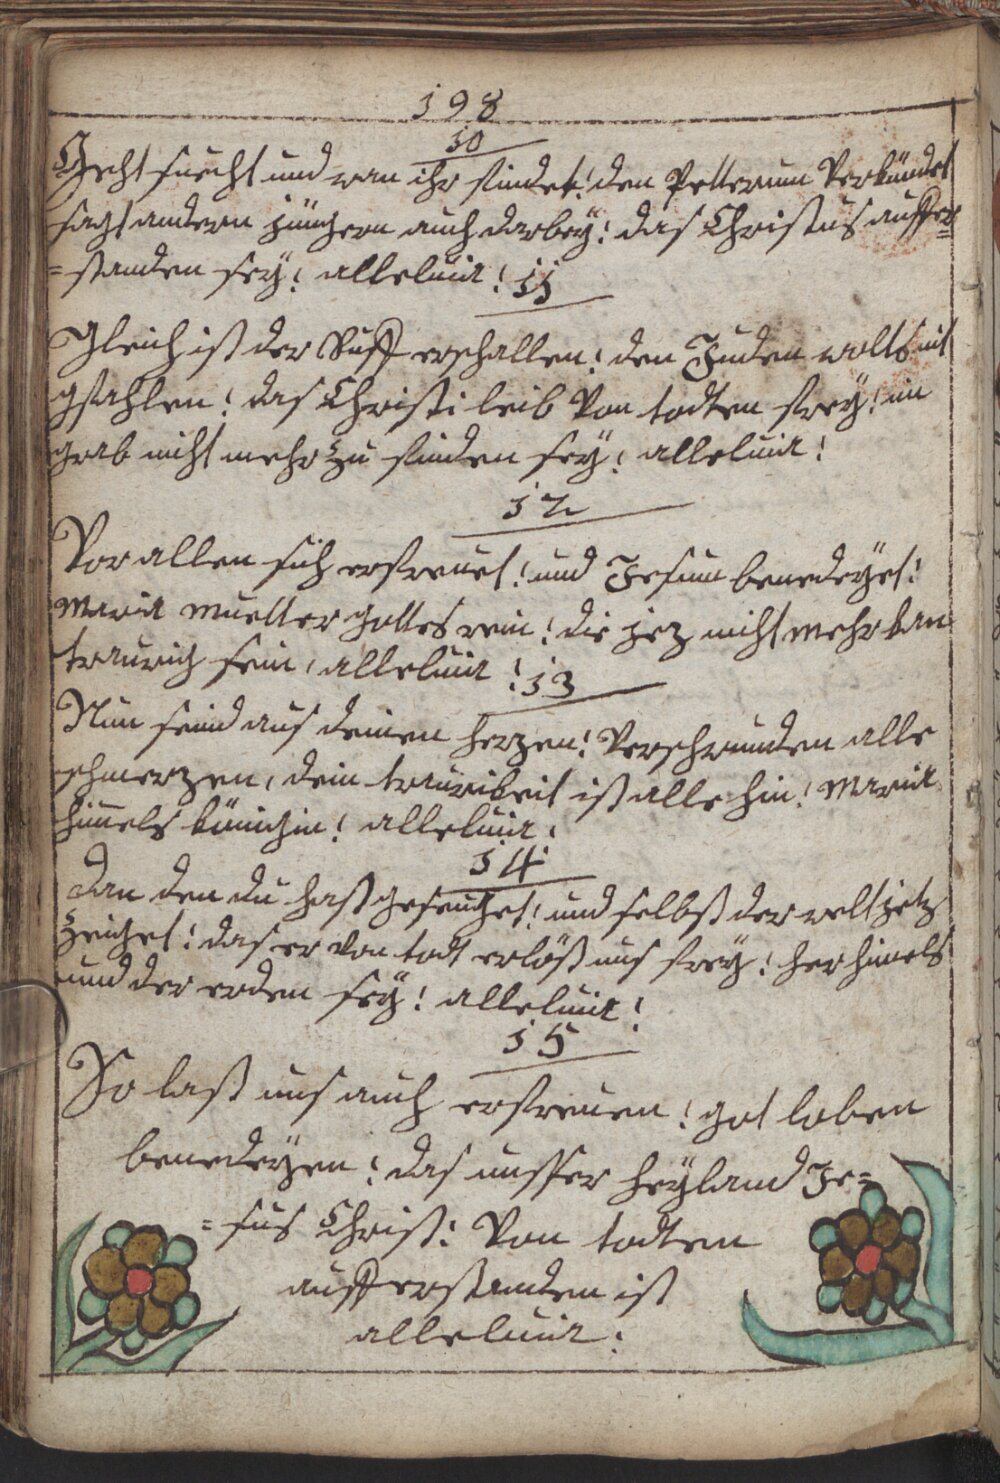 198
10
Geht suecht und wan ihr findet! den Petterum Verkündet
sagt andern jüngern auch darbey! das Christus auffer=
=standen seÿ! alleluia! 11
Gleich ist der Ruff erschallen! den Juden wolts nit
gfahlen! das Christi leib Von todten freÿ! im
grab nicht mehr zu finden seÿ! alleluia!
12
Vor allen sich erfreuet! und Jesum benedeÿet!
Maria Muetter gottes rein! die jez nicht mehr kan
traurig sein, alleluia! 13
Nun seind aus deinen herzen! Verschwunden alle
schmerzen, dein traurikeit ist alle hin! Maria
him̄els königin! alleluia!
14
Dan den du hast geseuget! und selbst der welt jetz
zeiget! das er von todt erlöst uns freÿ! her himels
und der erden seÿ! alleluia!
15
So last uns auch erfreuen! got loben
benedeyen! das unsser heÿland Je=
=sus Christ! Von todten
aufferstanden ist
alleluia!